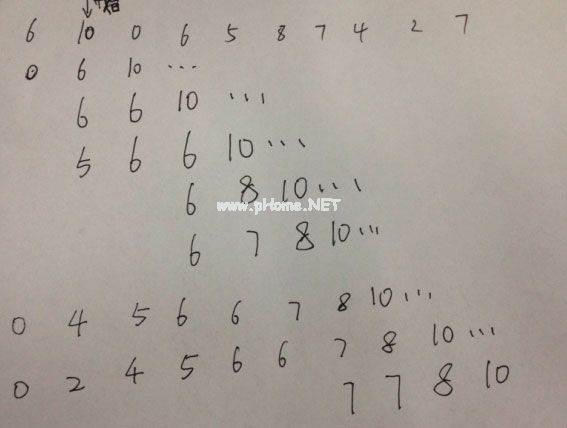 6 10 0 6 5 8 7 4 2 7
0 6 10 ...
6 6 10 ...
5 6 6 10 ...
6 8 10 ...
www.pHome.NET
6 7 8 10 ...
0 4 5 6 6 7 8 10 ...
0 2 4 5 6 6 7 8 10 ...
7 7 8 10